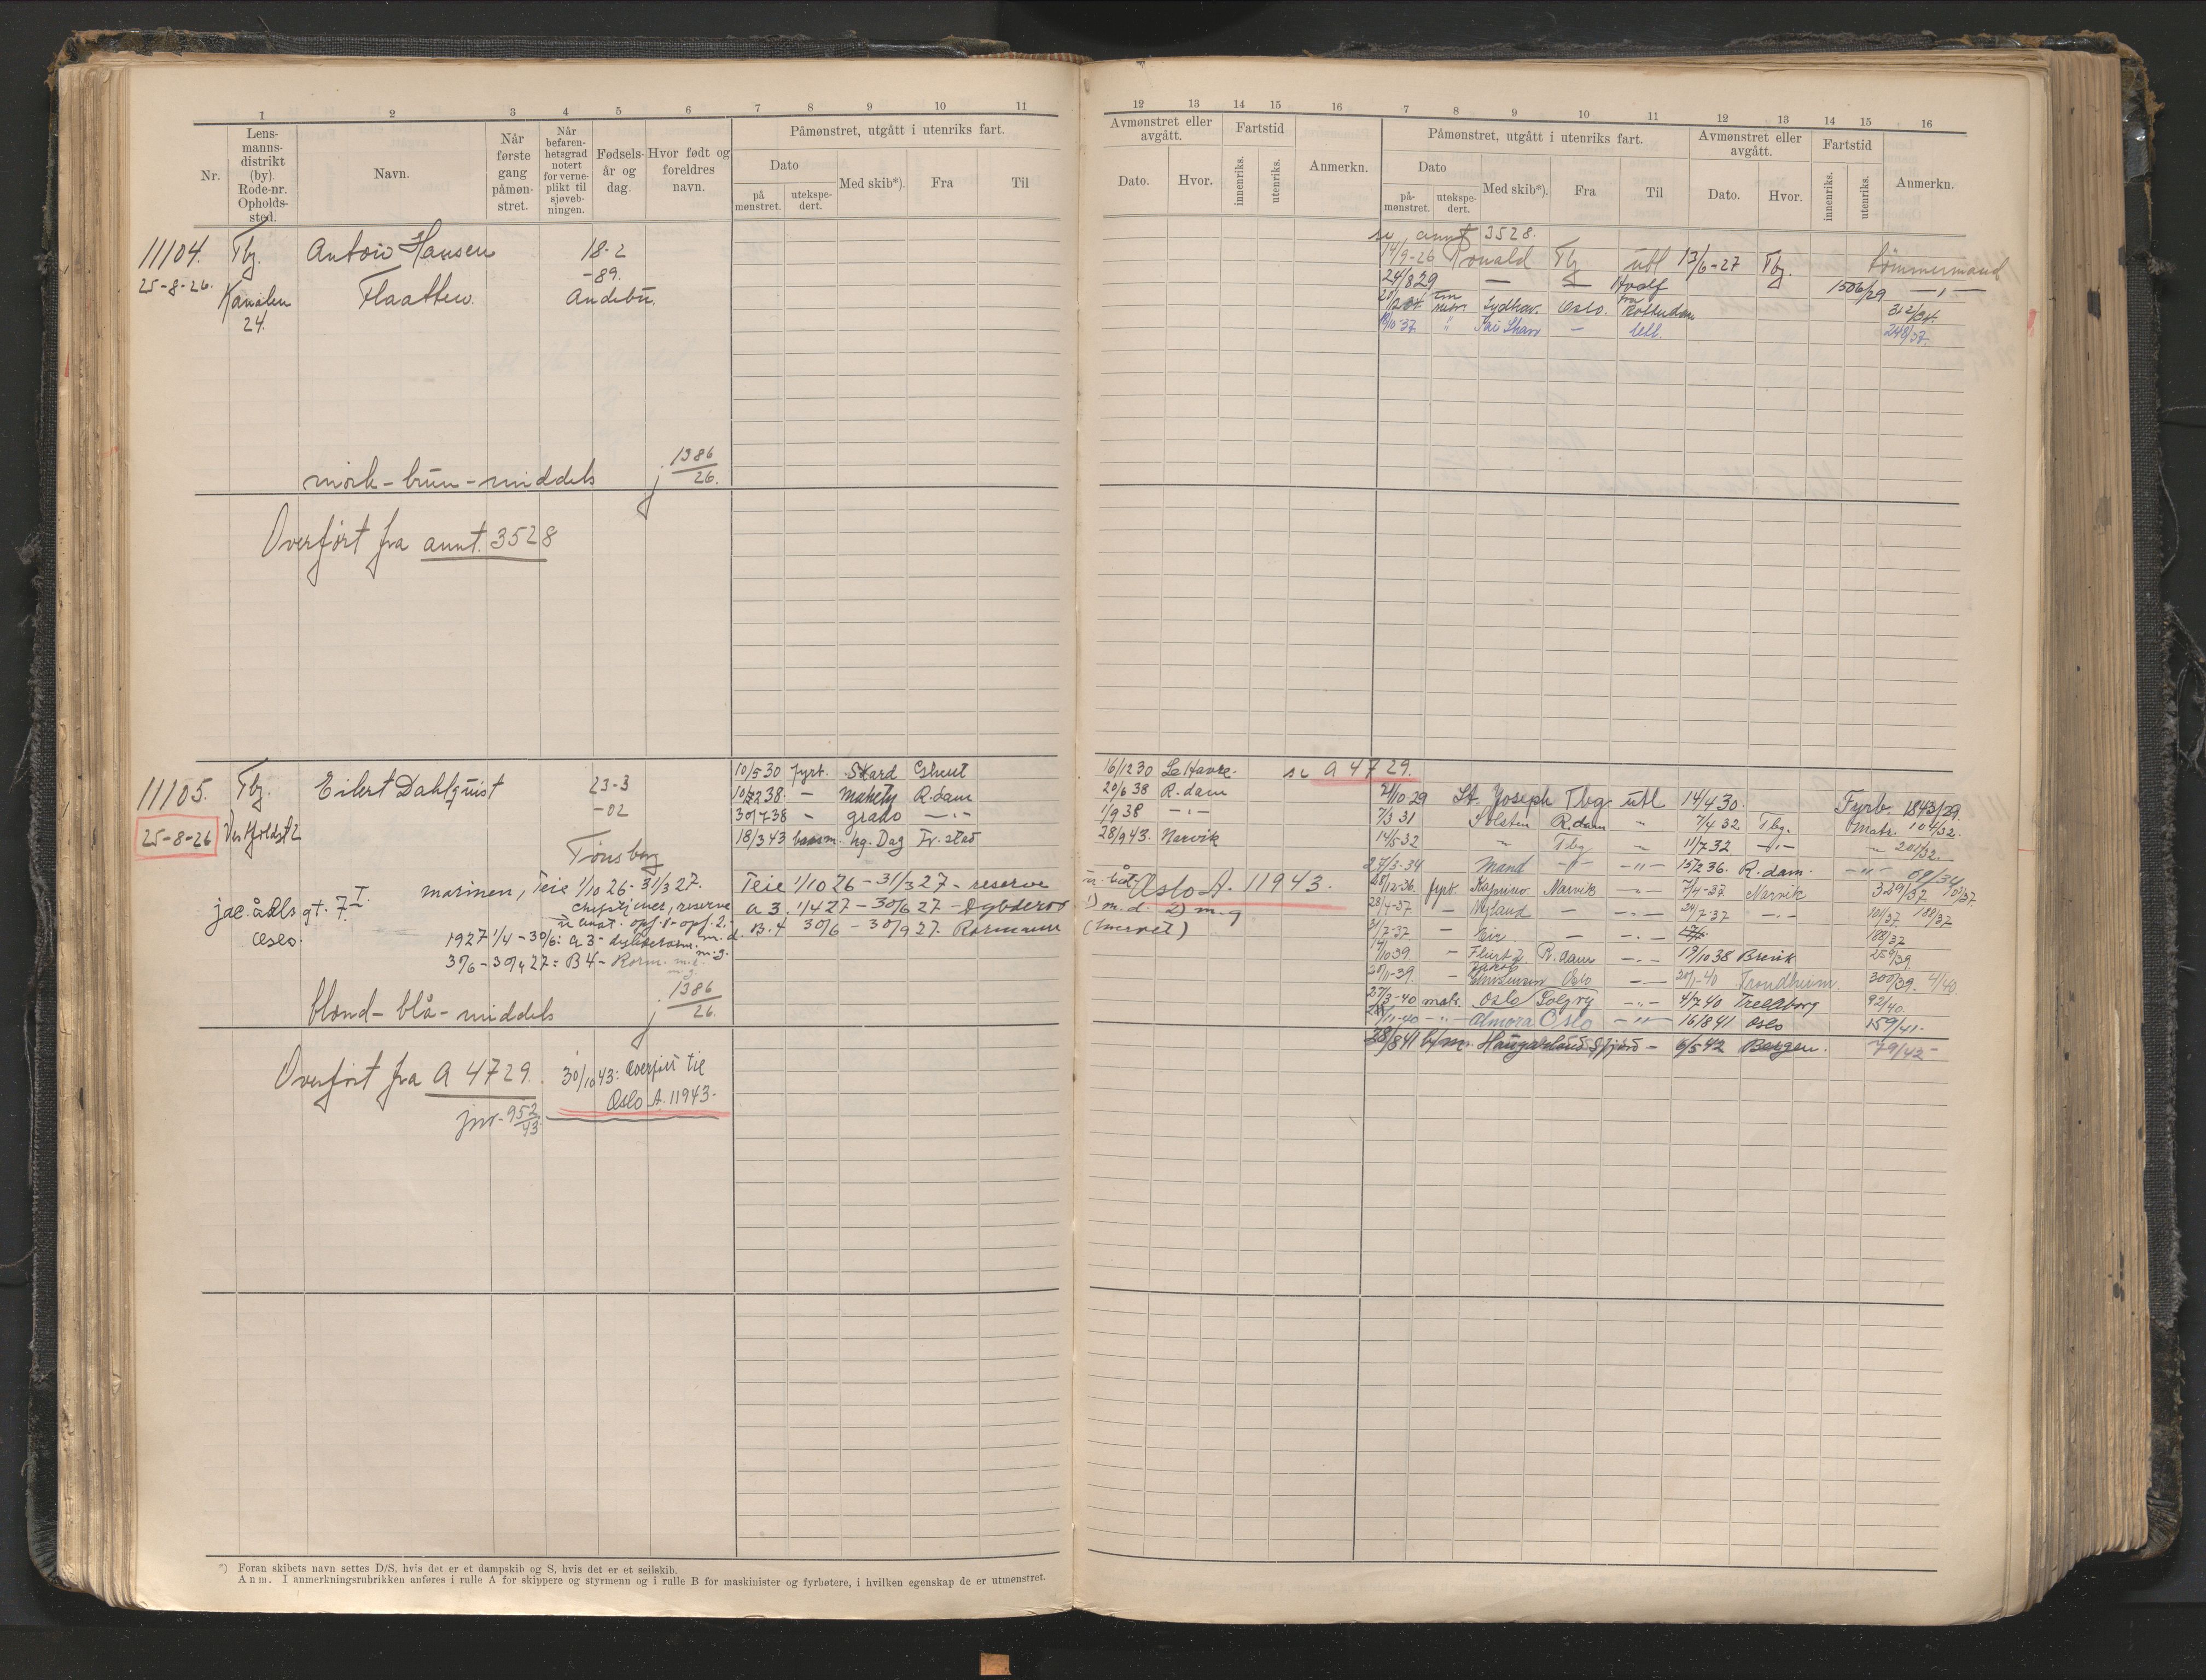 1 2 3 4 5 6 7 8 9 10 11
Nr.
Lens-
manns-
distrikt
(by).
Rode-nr.
Opholds-
sted.
Navn.
Når
første
gang
påmøn-
stret.
Når
befaren-
hetsgrad
notert
for verne-
plikt til
sjøveb-
ningen.
Fødsels-
år og
dag.
Hvor født og
foreldres
navn.
Påmønstret, utgått i utenriks fart.
Dato
på
mønstret.
utekspe-
dert.
Med skib*).
Fra
Til
11104. Tbg. Anton Hansen 18-2
25-8-26. Kanalen Flaatten. -89.
24. Andebu.
mørk - brun - middels j 1386/26.
Overført fra annt. 3528
11105. Tbg. Eilert Dahlquist 23-3
25-8-26 Vestfoldgt 2 -02
Tønsberg
marinen, Teie 1/10 26 - 31/3 27.
jac. aalls gt. 7 I
Oslo.
1927 1/4 - 30/6: A3-
blond - blå - middels j 1386/26.
Overført fra A 4729.
30/10 43: Overført til
Oslo A. 11943.
jnr. 952/43
10/5 30 fyrb. Skard Ghent
38. - Makety R.dam
30/7 38 - grado - " -
18/3 43 hg. Dag Fr.stad
Teie 1/10 26 - 31/3 27 - reserve
A 3. 1/4 27 - 30/6 27 -
B. 4 30/6 - 30/9 27.
*) Foran skibets navn settes D/S, hvis det er et dampskib og S, hvis det er et seilskib.
Anm. I anmerkningsrubrikken anføres i rulle A for skippere og styrmenn og i rulle B for maskinister og fyrbøtere, i hvilken egenskap de er utmønstret.
12 13 14 15 16 7 8 9 10 11 12 13 14 15 16
Avmønstret eller
avgått.
Dato.
Hvor.
Fartstid
innenriks.
utenriks.
Anmerkn.
Påmønstret, utgått i utenriks fart.
Dato
på-
mønstret.
utekspe-
dert.
Med skib*).
Fra
Til
Avmønstret eller
avgått.
Dato.
Hvor.
Fartstid
innenriks.
utenriks.
Anmerkn.
se annt 3528.
14/9-26 Ronald Tbg utl 13/6-27 Tbg. tømmermand
24/8 29 - - Hvalf 1506/29 - " -
Sydhav. Oslo. fra Rotterdam 312/34.
10/10 37 " - utl. 248/37.
16/12 30 Le Havre.
20/6 38 R.dam
1/9 38 - " -
28/9 43. Narvik
se A 4729.
Oslo A. 11943.
1) m.d. 2) m.g
21/10 29 St. Joseph Tbg utl 14/4 30. Fyrb. 1843/29.
7/3 31 Solsten R.dam " 7/4 32 Tbg. Matr. 104/32.
14/5-32 " Tbg " 11/7 32 - " - " 201/32.
27/3-34 Mand - " - - " - 15/2 36. R.dam. - " - 68/34
28/12-36. fyrb. Kaprino Narvik - " - 7/4-37 Narvik 329/37
28/4-37 - Nyland - - " - 24/7-37 - " - 101/37 188/37
31/7-37 - - - " - 188/37
14/10 39. - R.dam - " - 19/10 38 Brevik 259/39.
20/11-39. - Oslo - 20/1-40 Trondheim. 300/39. 4/40
27/3-40 matr. Oslo/Solgry - " - 4/7 40 Trelleborg 92/40.
11-40 - " - Almora Oslo - " - 16/8 41 Oslo 159/41.
28/8 41 b/m. Haugarland - 6/5 42 Bergen. 79/42